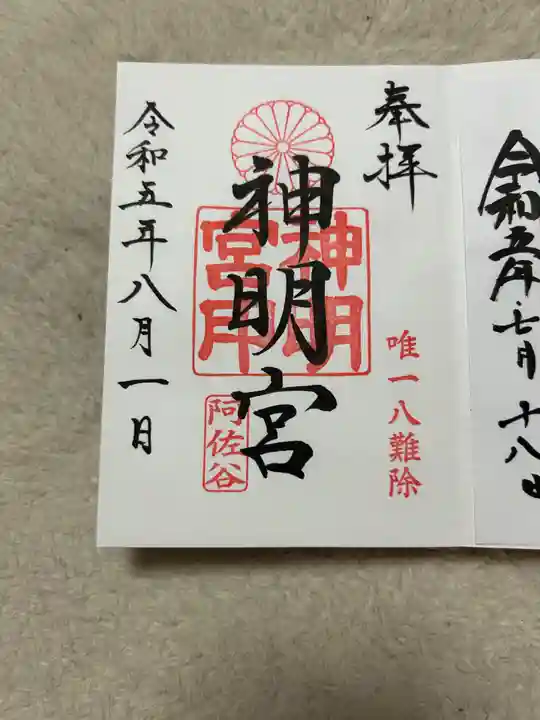 令和五年七月十八日
奉拝
唯一八難除
神明宮
神明宮印
阿佐谷
令和五年八月一日